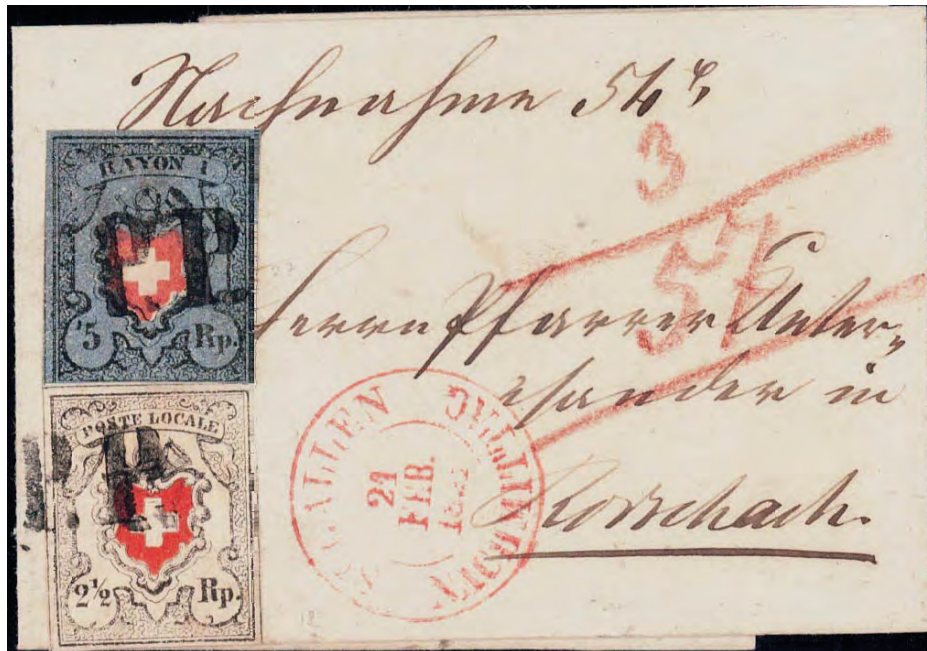 Nachnahme 54 x,
3
57
RAYON I
P.P.
5 Rp.
Herrn Pfarrer Unter=
sander in
Rorschach.
POSTE LOCALE
P.P.
2½ Rp.
ST. GALLEN
21
FEB.
VORMITTAG